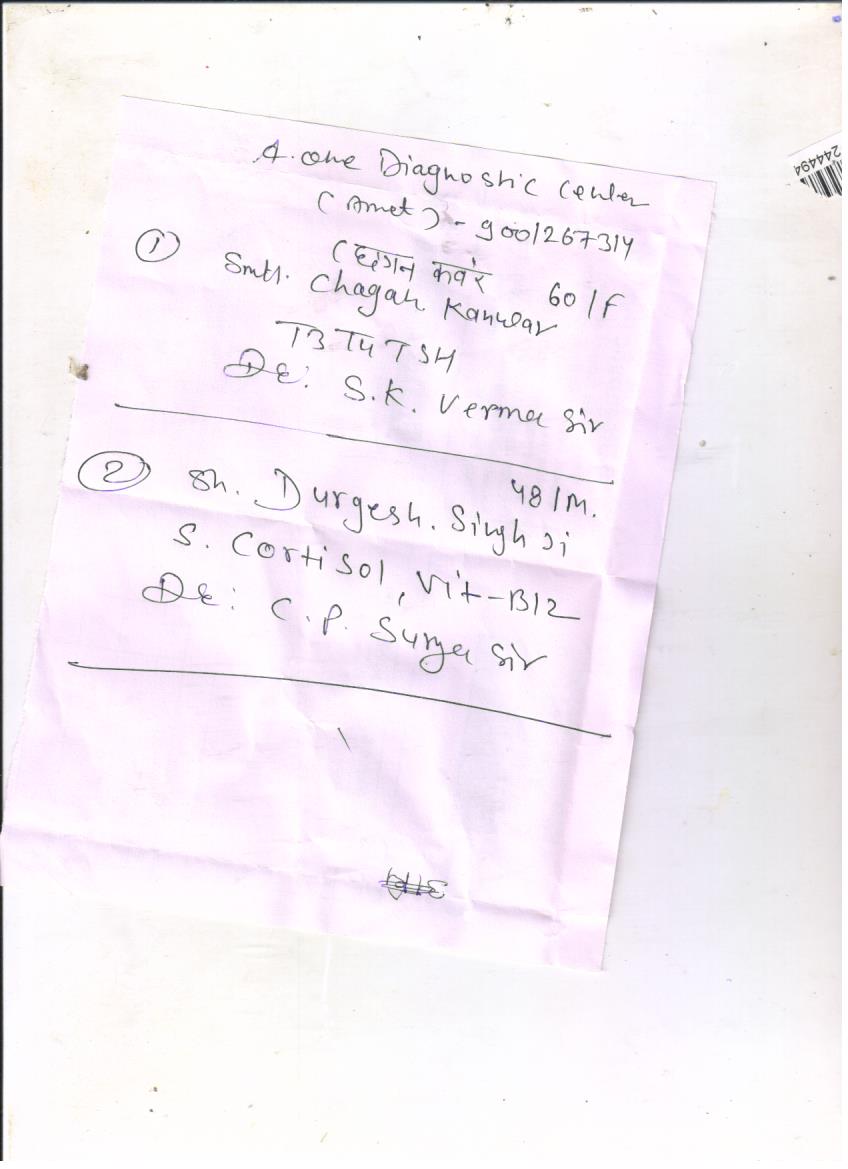 A. one Diagnostic Center
(Amet) - 9001267314
① (छगन कवंर
Smt. Chagan Kanwar 60/F
T3 T4 TSH
Dr. S.K. Verma Sir
② Sh. Durgesh. Singh Ji 48/M.
S. Cortisol, Vit-B12
Dr: C.P. Surya Sir
244494